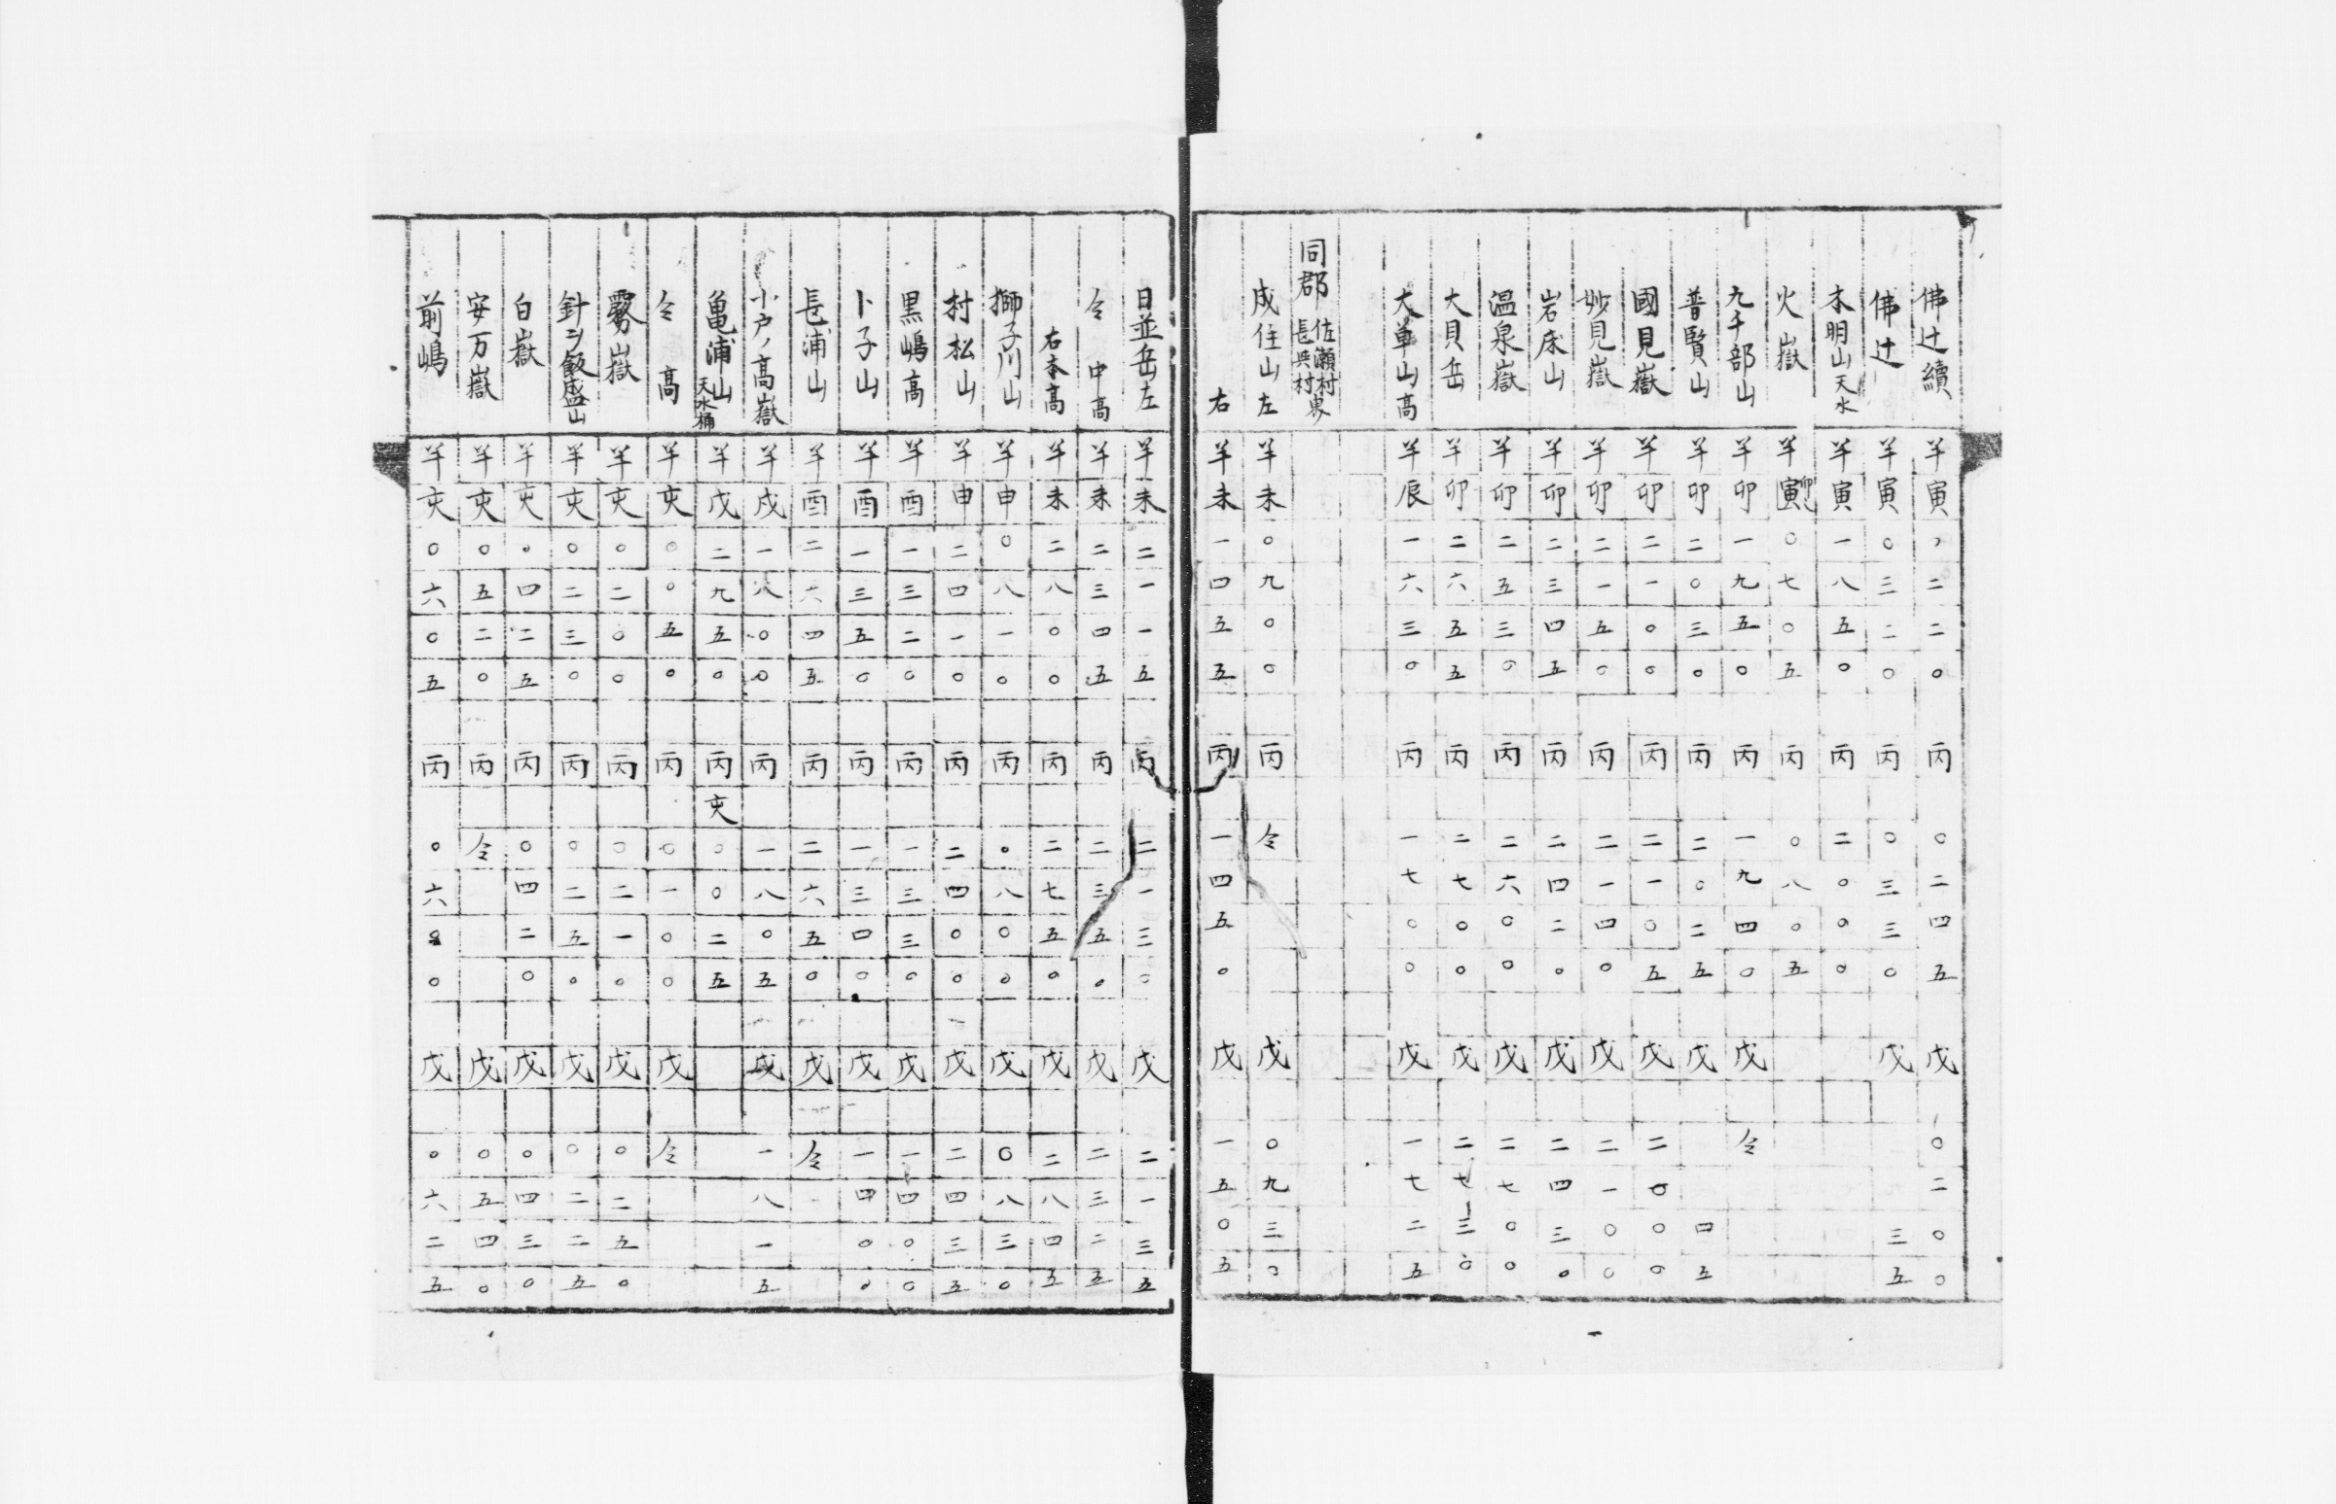 佛辻續羊寅〇二二〇丙〇二四五戊〇二〇〇
佛辻羊寅〇三二〇丙〇三三〇戊三五
本明山天水羊寅一八五〇丙二〇〇〇
火嶽羊寅卯〇七〇五丙〇八〇五
九千部山羊卯一九五〇丙一九四〇戊仝
普賢山羊卯二〇三〇丙二〇二五戊四五
國見嶽羊卯二一〇〇丙二一〇五戊二〇〇〇
妙見嶽羊卯二一五〇丙二一四〇戊二一〇〇
岩床山羊卯二三四五丙二四二〇戊二四三〇
温泉嶽羊卯二五三〇丙二六〇〇戊二七〇〇
大貝岳羊卯二六五五丙二七〇〇戊二七三〇
大単山高羊辰一六三〇丙一七〇〇戊一七二五
同郡佐瀬村長與村界
成住山左羊未〇九〇〇丙仝戊〇九三〇
右羊未一四五五丙一四五〇戊一五〇五
日並岳左羊未二一一五丙二一三〇戊二一三五
仝中高羊未二三四五丙二三五〇戊二三二五
右本高羊未二八〇〇丙二七五〇戊二八四五
獅子川山羊申〇八一〇丙〇八〇〇戊〇八三〇
村松山羊申二四一〇丙二四〇〇戊二四三五
黒嶋高羊酉一三二〇丙一三三〇戊一四〇〇
卜子山羊酉一三五〇丙一三四〇戊一四〇〇
長浦山羊酉二六四五丙二六五〇戊仝
小戸ノ高嶽羊戌一八〇〇丙一八〇五戊一八一五
亀浦山天水桶羊戌二九五〇丙亥〇〇二五
仝高羊亥〇〇五〇丙〇一〇〇戊仝
雰嶽羊亥〇二〇〇丙〇二一〇戊〇二五〇
針ヲ飯盛山羊亥〇二三〇丙〇二五〇戊〇二二五
白嶽羊亥〇四二五丙〇四二〇戊〇四三〇
安万嶽羊亥〇五二〇丙仝戊〇五四〇
前嶋羊亥〇六〇五丙〇六〇戊〇六二五